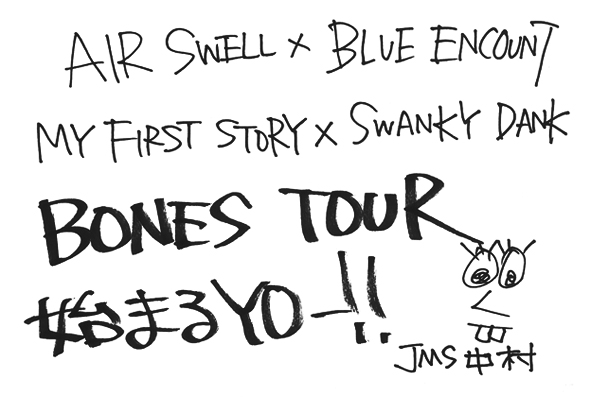 AIR SWELL × BLUE ENCOUNT
MY FIRST STORY × SWANKY DANK
BONES TOUR
始まるYO-!!
JMS中村